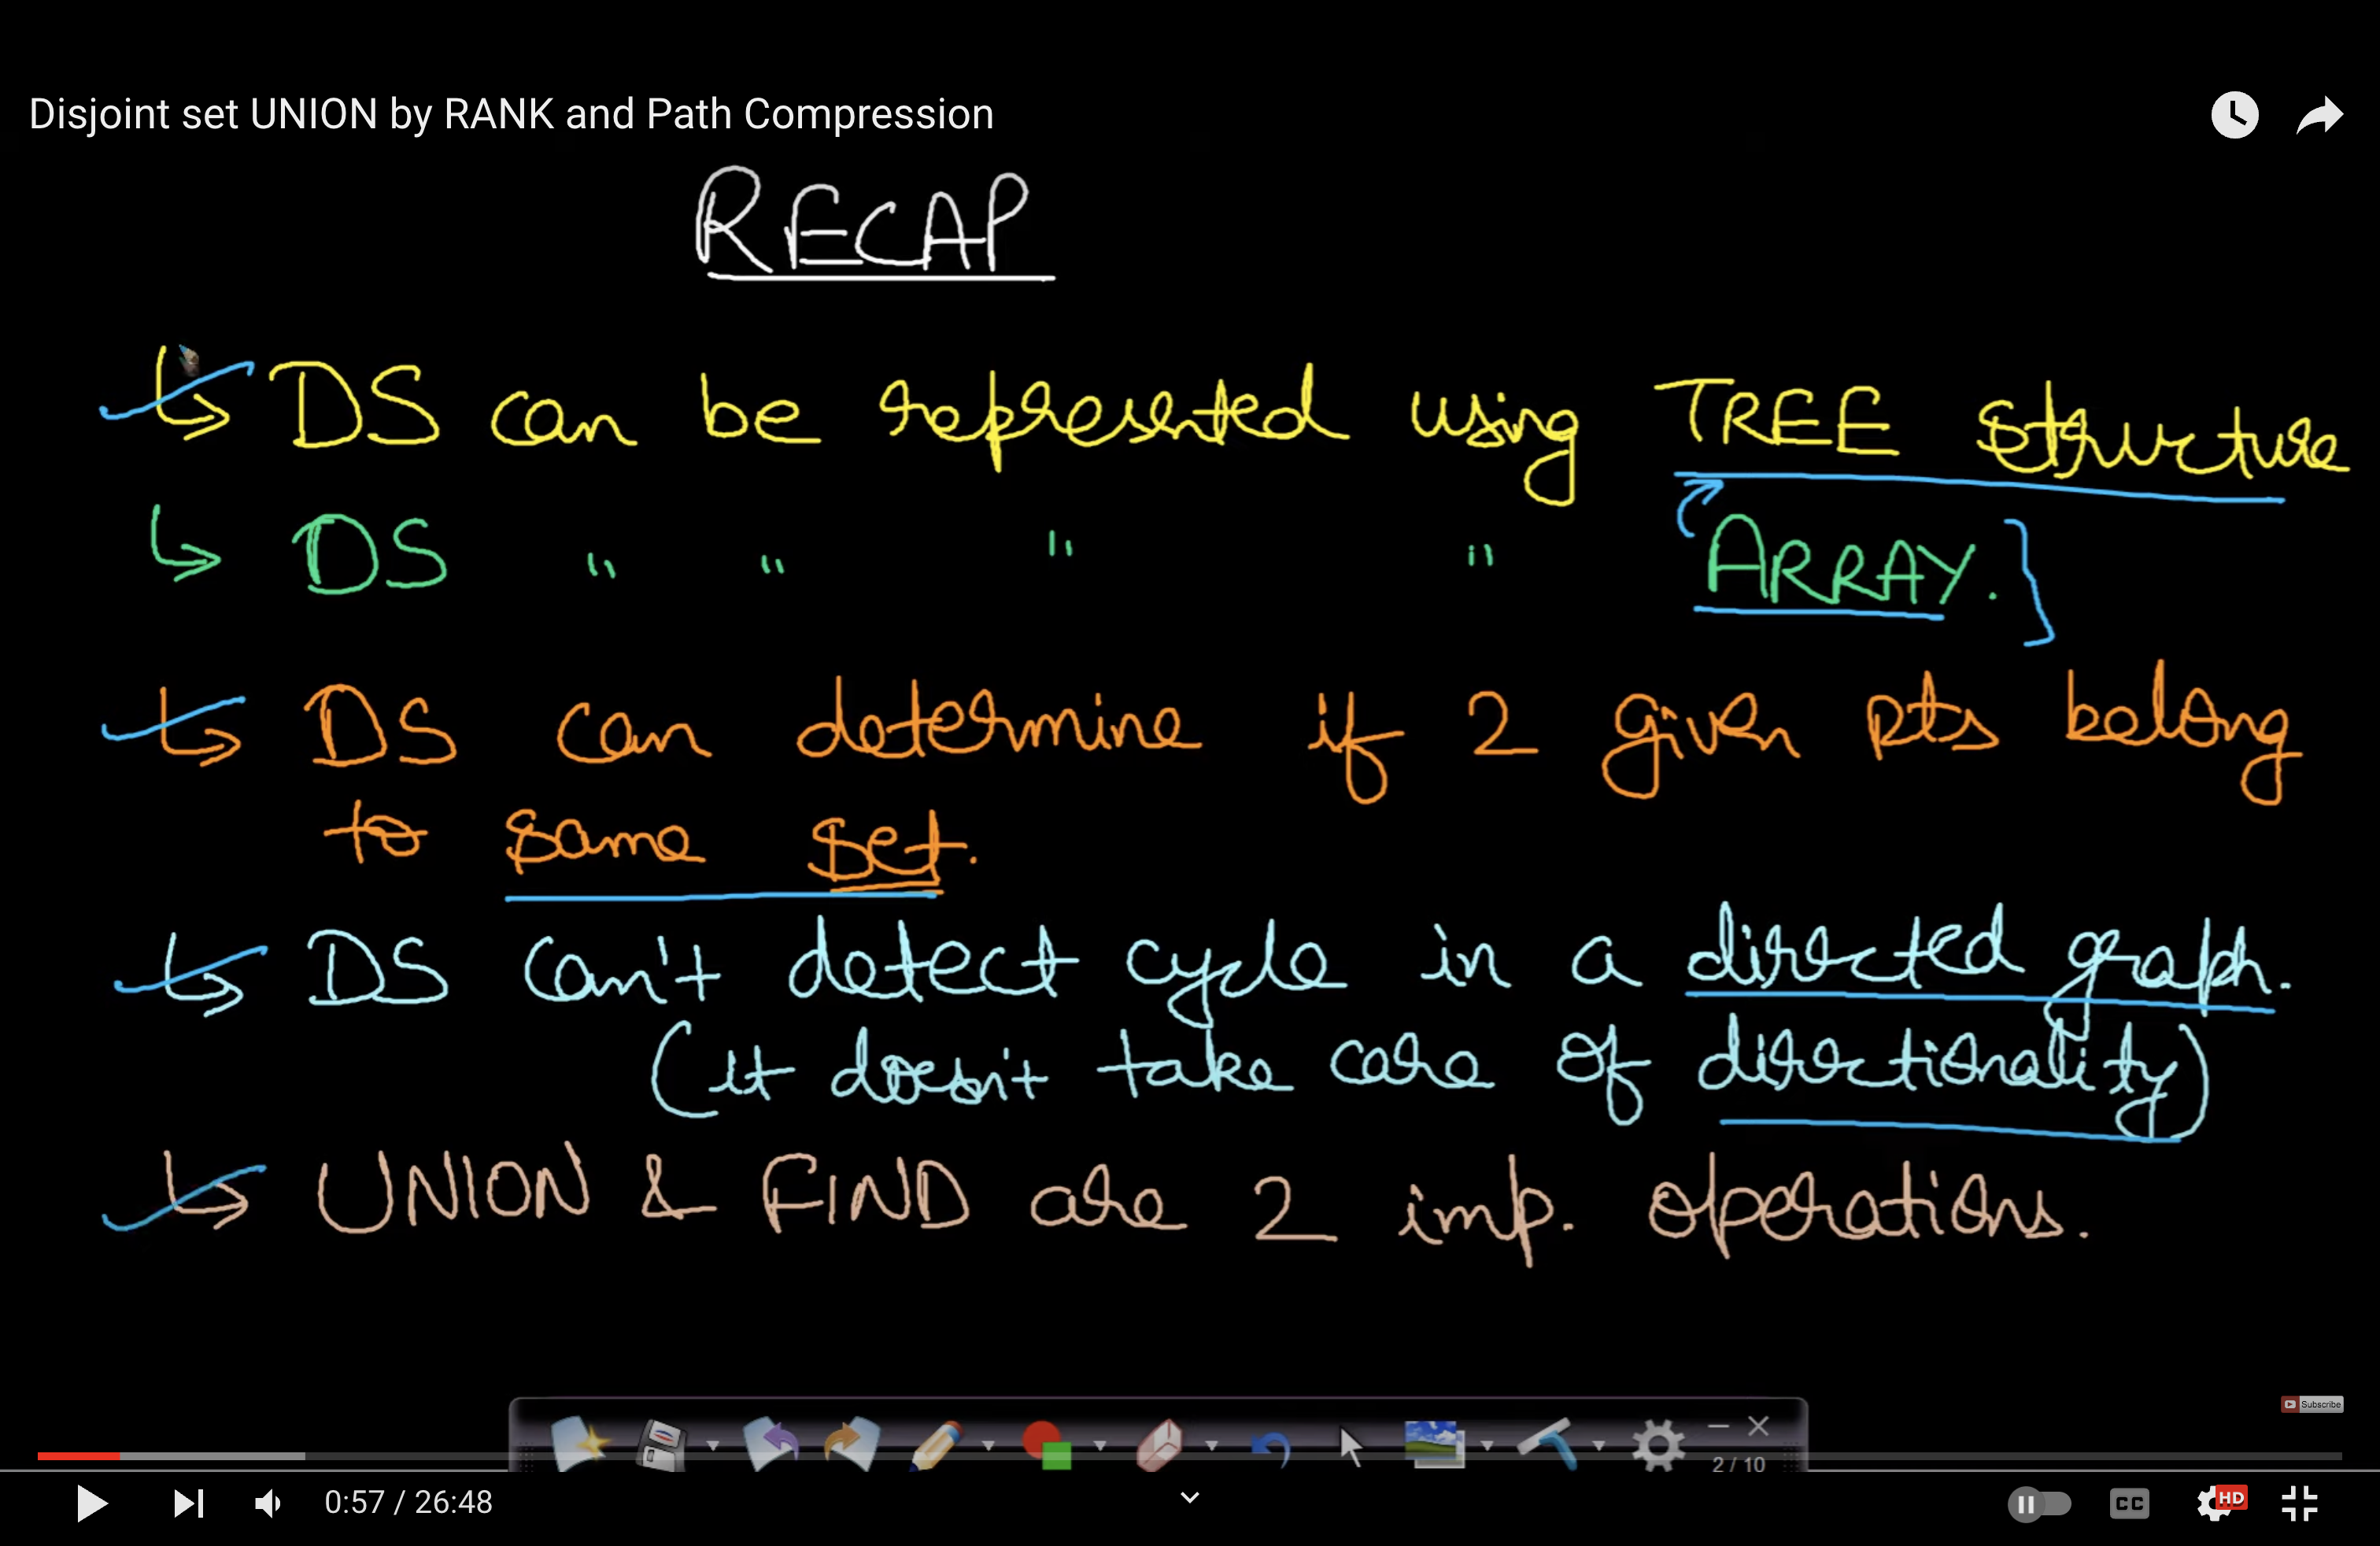 Disjoint set UNION by RANK and Path Compression
RECAP
↳ DS can be represented using TREE structure
↳ DS " " " " ARRAY.
↳ DS can determine if 2 given pts belong
to same set.
↳ DS can't detect cycle in a directed graph.
(it doesn't take care of directionality)
↳ UNION & FIND are 2 imp. operations.
Subscribe
2 / 10
0:57 / 26:48
CC
HD